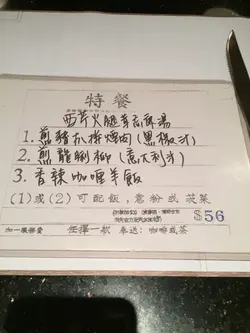 特餐
西芹火腿茸忌廉湯
1. 煎豬扒拼燒肉(黑椒汁)
2. 煎龍脷柳(意大利汁)
3. 香辣咖喱羊飯
(1)或(2)可配飯,意粉或茨菜
$56
加一服務費 任擇一款 奉送:咖啡或茶